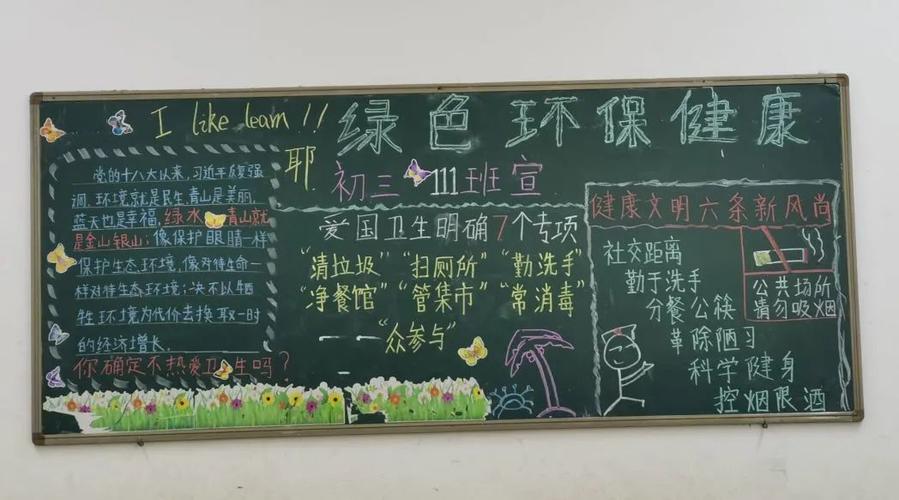 I like learn!!
绿色环保健康
耶
初三111班宣
党的十八大以来,习近平反复强
调,环境就是民生,青山是美丽,
蓝天也是幸福,绿水青山就
是金山银山;像保护眼睛一样
保护生态环境,像对待生命一
样对待生态环境;决不以牺
牲环境为代价去换取一时
的经济增长.
你确定不热爱卫生吗?
爱国卫生明确7个专项
“清垃圾”“扫厕所”“勤洗手”
“净餐馆”“管集市”“常消毒”
——“众参与”
健康文明六条新风尚
社交距离
勤于洗手
分餐公筷
革除陋习
科学健身
控烟限酒
公共场所
请勿吸烟